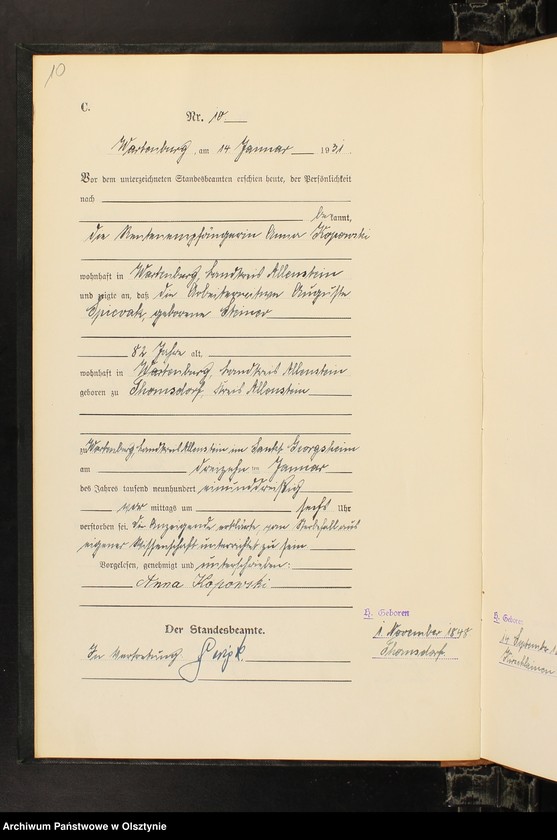 10
C.
Nr. 10
Wartenburg, am 14 Januar 1931.
Vor dem unterzeichneten Standesbeamten erschien heute, der Persönlichkeit
nach
bekannt,
die Rentenempfängerin Anna Kopowski
wohnhaft in Wartenburg, Landkreis Allenstein
und zeigte an, daß die Arbeiterwitwe Auguste
geborene
82 Jahre alt,
wohnhaft in Wartenburg, Landkreis Allenstein
geboren zu Thomsdorf, Kreis Allenstein
zu Wartenburg, Landkreis Allenstein im Sankt Georgsheim
am dreizehnten Januar
des Jahres tausend neunhundert einunddreißig
vor mittags um sechs Uhr
verstorben sei. Die Anzeigende erklärte, vom Sterbefall aus
eigener Wissenschaft unterrichtet zu sein
Vorgelesen, genehmigt und unterschrieben:
Anna Kopowski
Der Standesbeamte.
In Vertretung
H. Geboren
1 November 1848
Thomsdorf.
H. Geboren
14 September
Archiwum Państwowe w Olsztynie